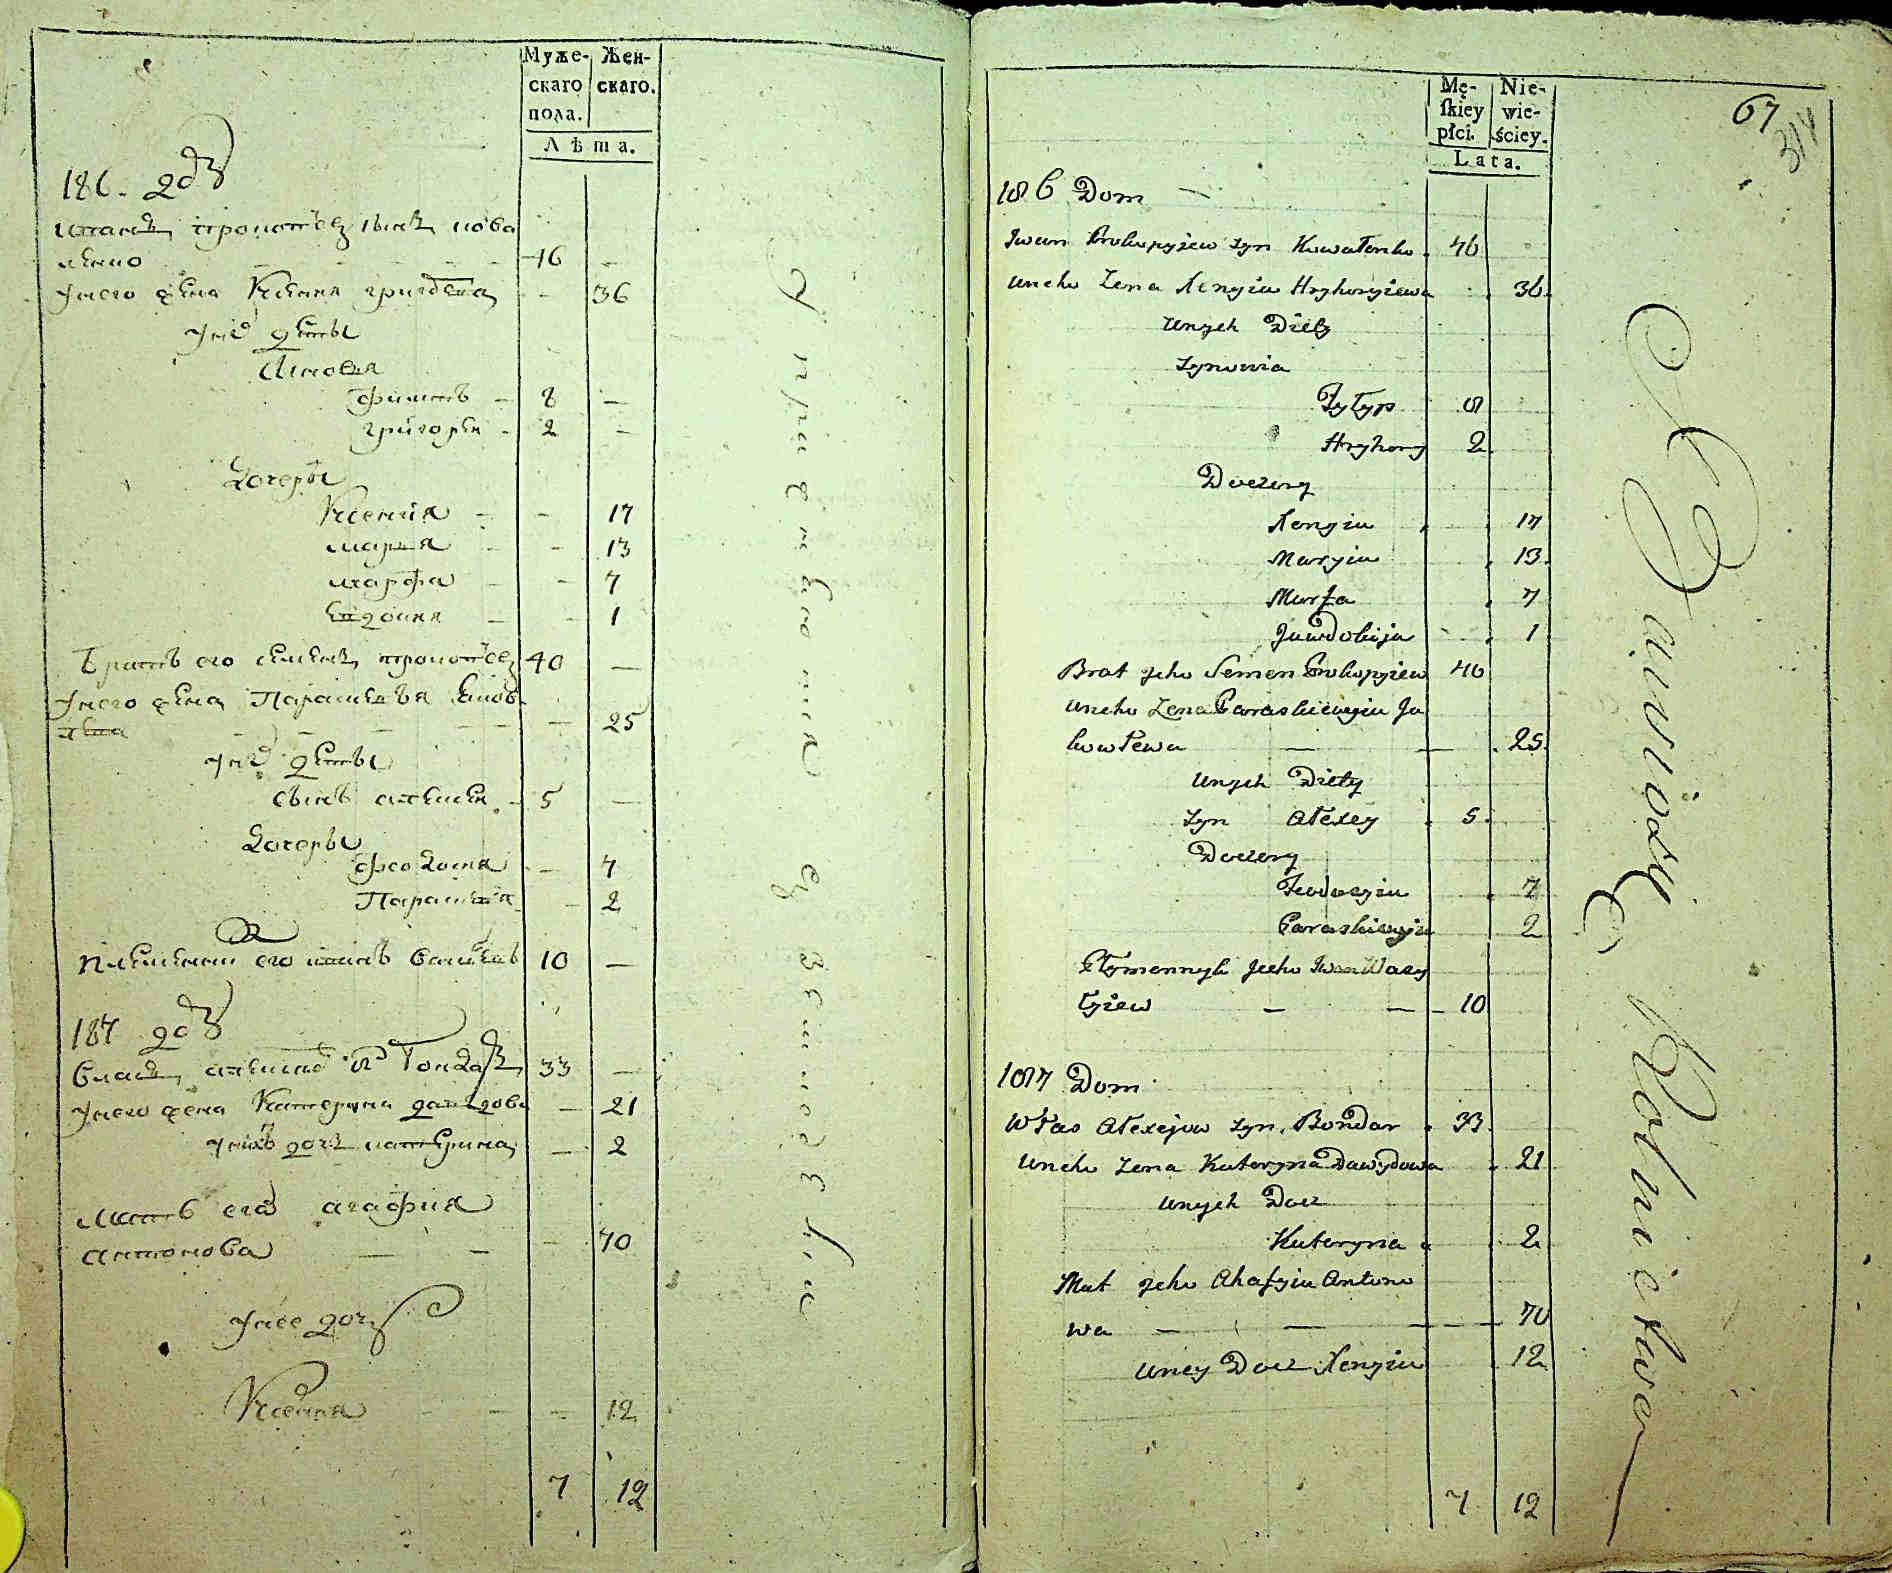 Муже-
скаго
пола.
Жен-
скаго.
Лѣта.
186. дѡ
Иванъ прокопѣевъ сынъ кова
ленко 46
Унего жена Ксения григорева 36
Уних дѣти
Сыновя
Филипъ 8
григорей 2
Дочеры
Ксения 17
марья 13
марфа 7
Евдокия 1
Братъ его семенъ прокопѣевъ 40
Унего жена Параскевѣя Яков
лева 25
Уних дѣти
сынъ алексей 5
Дочеры
феодосия 7
Параскевия 2
племеник его иванъ Васильевъ 10
187 дѡ
Власъ алексеевъ сынъ Бондарь 33
Унего жена Катерина давидова 21
Унихъ дочь катерина 2
Мать его агафия
антонова 70
Унее дочь
Ксения 12
7 12
Упражняются в землепашестве
67
314
Mę-
skiey
płci.
Nie-
wie-
ściey.
Lata.
186 Dom
Iwan Prokopyiew syn Kowalenko 46
Uneho Zena Xenyia Hryhoryiewa 36
Unych Diety
Synowia
Fylyp 8
Hryhory 2
Doczery
Xenyia 17
Maryia 13
Marfa 7
Jawdokija 1
Brat jeho Semen Prokopyiew 40
Uneho Zena Paraskiewyia Ja
kowlewa 25
Unych Diety
Syn Alexey 5
Doczery
Feodosyia 7
Paraskiewyia 2
Plymennyk jeho Iwan Wasy
lyiew 10
187 Dom
Wlas Alexejow syn Bondar 33
Uneho Zena Kateryna Dawydowa 21
Unych Docz
Kateryna 2
Mat jeho Ahafyia Antono
wa 70
Uney Docz Xenyia 12
7 12
Zawiozek Rolnictwa